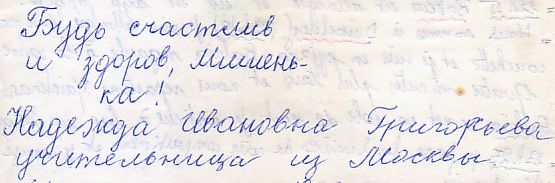 Будь счастлив
и здоров, Мишень-
ка!
Надежда Ивановна Григорьева
учительница из Москвы.